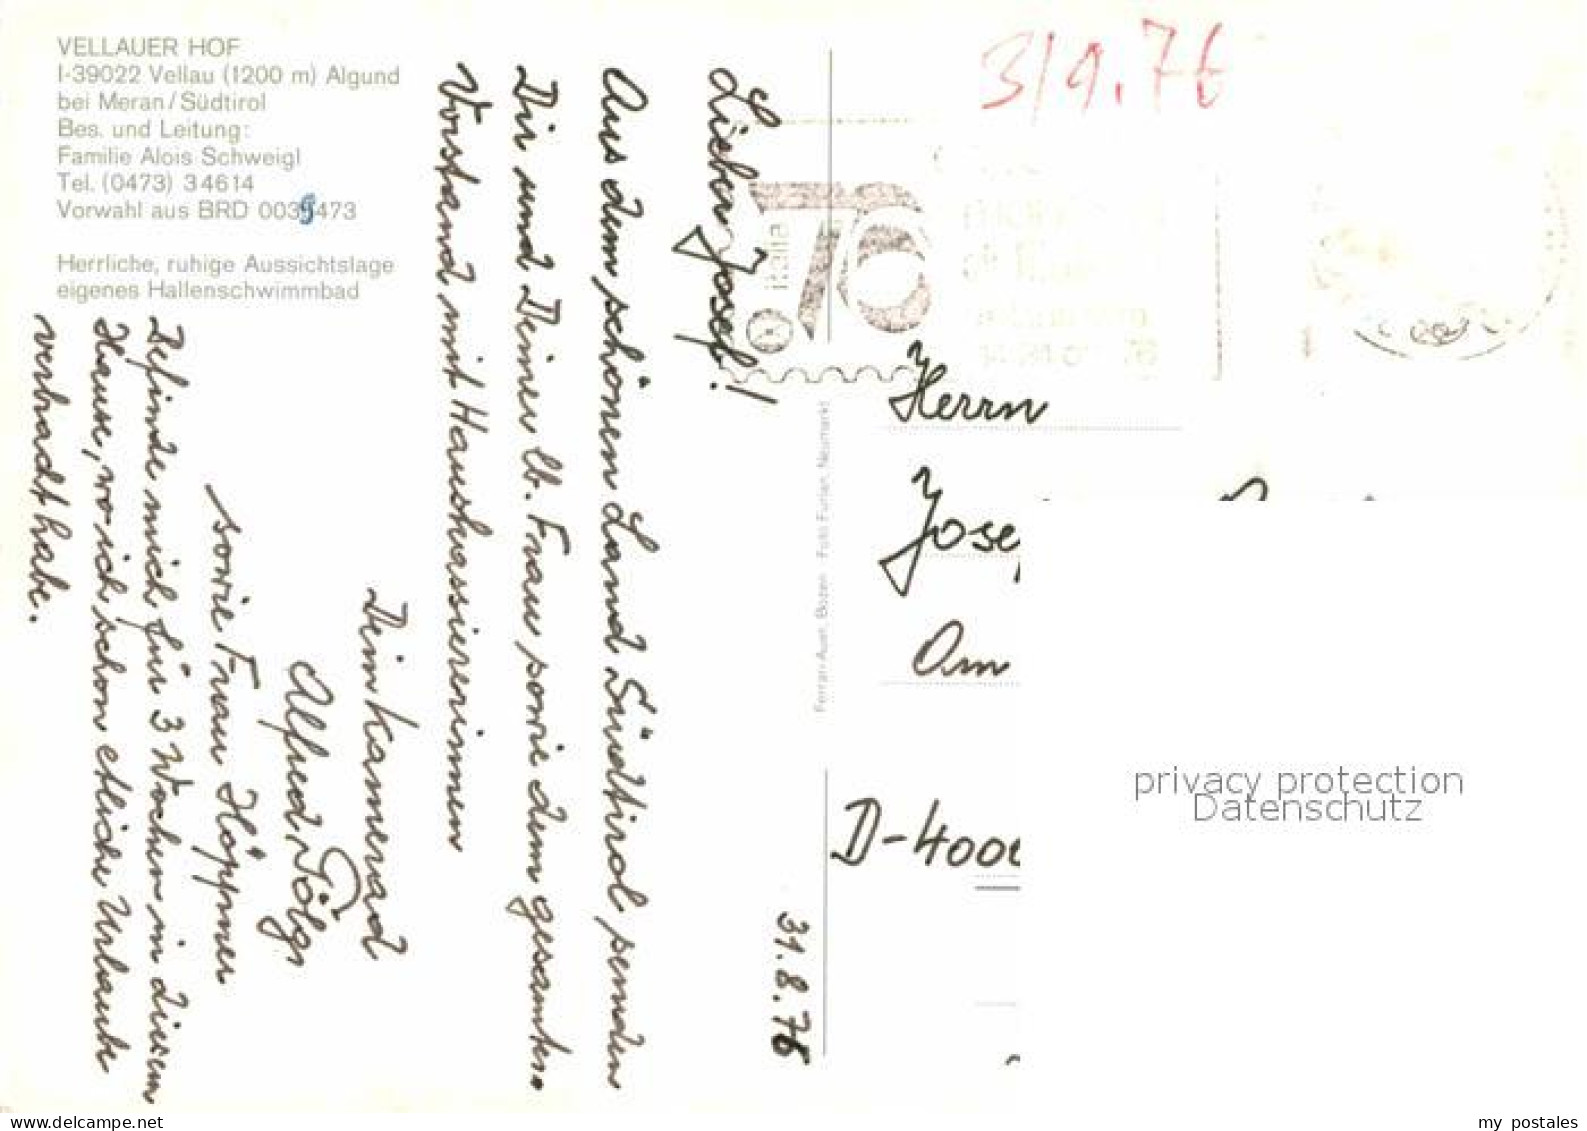 VELLAUER HOF
I-39022 Vellau (1200 m) Algund
bei Meran/Südtirol
Bes. und Leitung:
Familie Alois Schweigl
Tel. (0473) 34614
Vorwahl aus BRD 0039473
Herrliche, ruhige Aussichtslage
eigenes Hallenschwimmbad
31.8.76
Lieber Josef!
Aus dem schönen Land Südtirol senden
Dir und Deiner lb. Frau sowie dem gesamten
Vorstand mit Hauskassiererinnen
Dein Kamerad
Alfred
sowie Frau Höppner
Befinde mich für 3 Wochen in diesem
Hause, wo ich schon etliche Urlaube
verbracht habe.
3/9.76
italia
76
Ferrari-Auer, Bozen - Foto Furlan, Neumarkt
Herrn
Jose
Am
D-400
privacy protection
Datenschutz
www.delcampe.net
my_postales